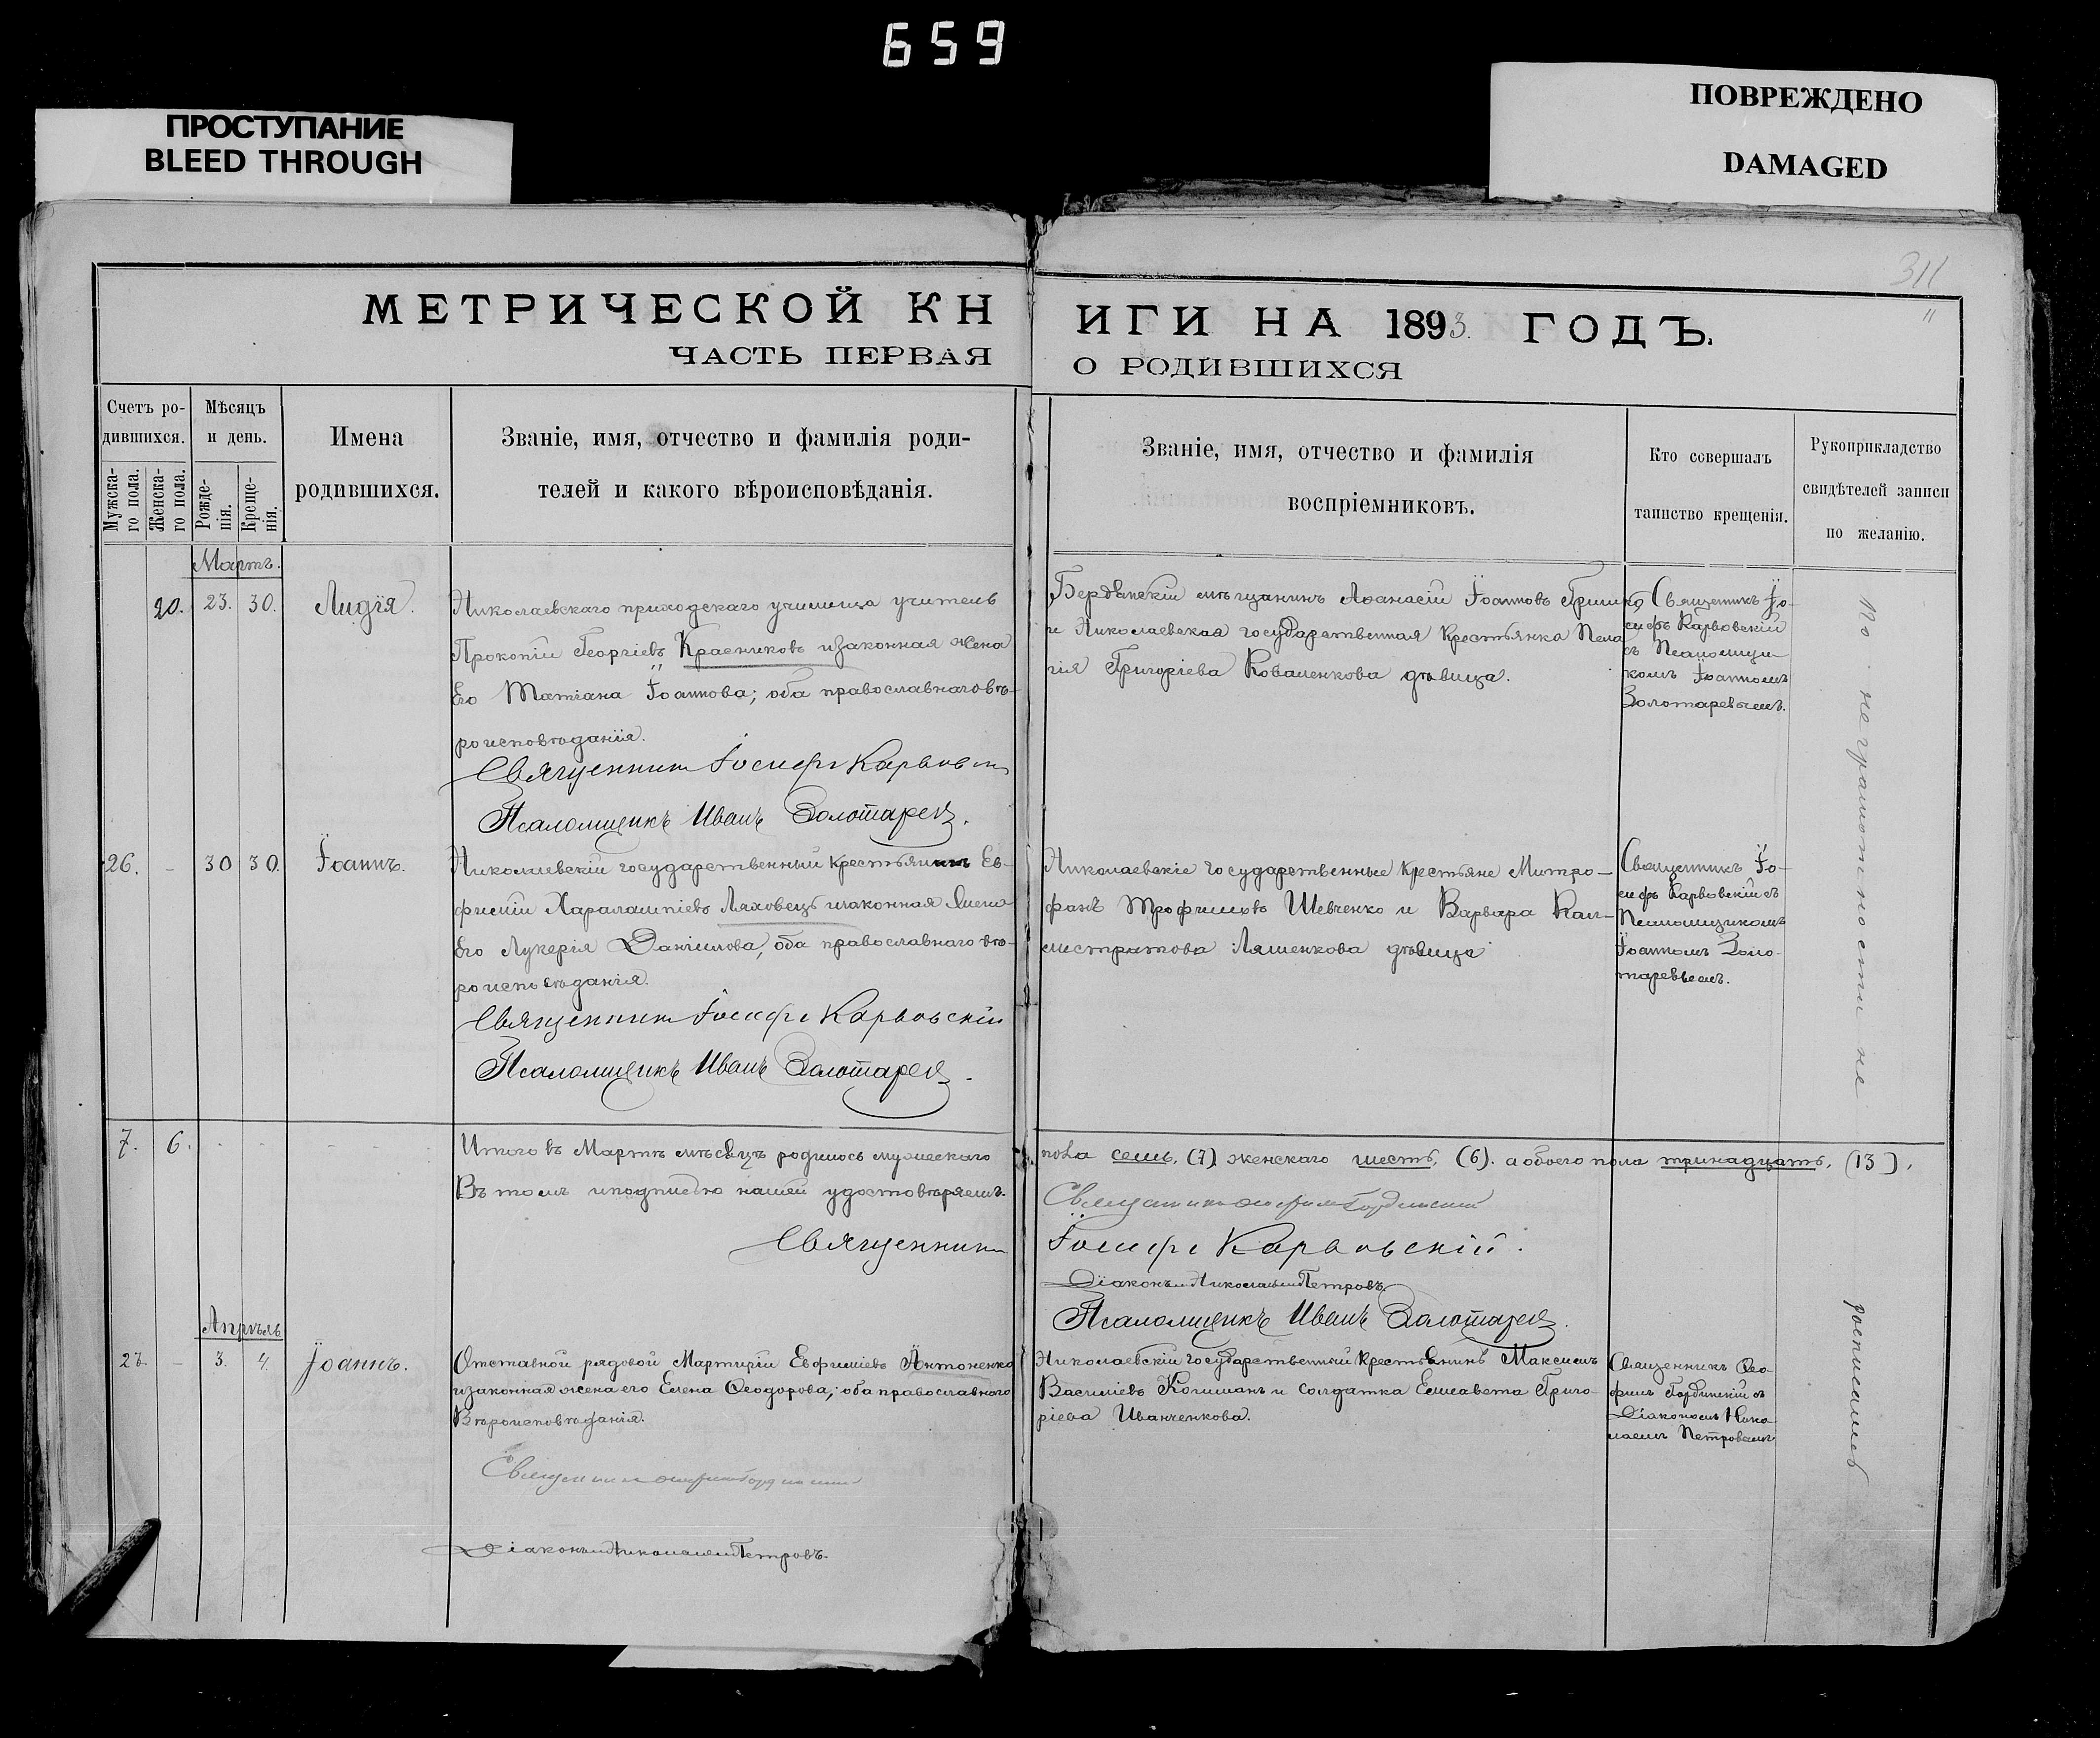 659
ПРОСТУПАНИЕ
BLEED THROUGH
ПОВРЕЖДЕНО
DAMAGED
311
11
МЕТРИЧЕСКОЙ КН
ЧАСТЬ ПЕРВАЯ
ИГИ НА 1893. ГОДЪ.
О РОДИВШИХСЯ
Счетъ ро-
дившихся.
Мужска-
го пола.
Женска-
го пола.
Мѣсяцъ
и день.
Рожде-
нія.
Креще-
нія.
Имена
родившихся.
Званіе, имя, отчество и фамилія роди-
телей и какого вѣроисповѣданія.
Званіе, имя, отчество и фамилія
воспріемниковъ.
Кто совершалъ
таинство крещенія.
Рукоприкладство
свидѣтелей записи
по желанію.
Мартъ.
20. 23. 30. Лидія.
Николаевскаго приходскаго училища учитель
Прокопій Георгіевъ Красниковъ и законная жена
Его Татіана Іоаннова; оба православнаго вѣ-
роисповѣданія.
Священникъ Іосифъ Карвовскі
Псаломщикъ Иванъ Золотаревъ.
Бердянскій мѣщанинъ Аѳанасій Іоанновъ Гришко,
и Николаевская государственная крестьянка Пела
гія Григоріева Коваленкова дѣвица.
Священникъ Іо-
сифъ Карвовскій
съ Псаломщи-
комъ Іоанномъ
Золотаревымъ.
26. - 30 30. Іоаннъ.
Николаевскій государственный крестьянинъ Ев-
фимій Харалампіевъ Ляховецъ и законная жена
Его Лукерія Даніилова, оба православнаго вѣ-
роисповѣданія.
Священникъ Іосифъ Карвовскій
Псаломщикъ Иванъ Золотаревъ.
Николаевскіе государственные крестьяне Митро-
фанъ Трофимовъ Шевченко и Варвара Кал-
листратова Ляшенкова дѣвица
Священникъ Іо-
сифъ Карвовскій съ
Псаломщикомъ
Іоанномъ Золо-
таревымъ.
7. 6. - - - -
Итого въ Мартѣ мѣсяцѣ родилось мужескаго
пола семь, (7). женскаго шесть, (6). а обоего пола тринадцать, (13).
Въ томъ и подписью нашей удостовѣряемъ.
Священникъ Ѳеофилъ Гординскій
Священникъ
Іосифъ Карвовскій.
Діаконъ Николай Петровъ.
Псаломщикъ Иванъ Золотаревъ.
Апрѣль
27. - 3. 4. Іоаннъ.
Отставной рядовой Мартирій Евфиміевъ Антоненко
и законная жена его Елена Ѳеодорова; оба православнаго
Вѣроисповѣданія.
Священникъ Ѳеофилъ Гординскій
Діаконъ Николай Петровъ.
Николаевскій государственный крестьянинъ Максимъ
Василіевъ Кошманъ и солдатка Елисавета Григо-
ріева Иванченкова.
Священникъ Ѳео-
филъ Гординскій съ
Діакономъ Нико-
лаемъ Петровымъ
По неграмотности не росписались